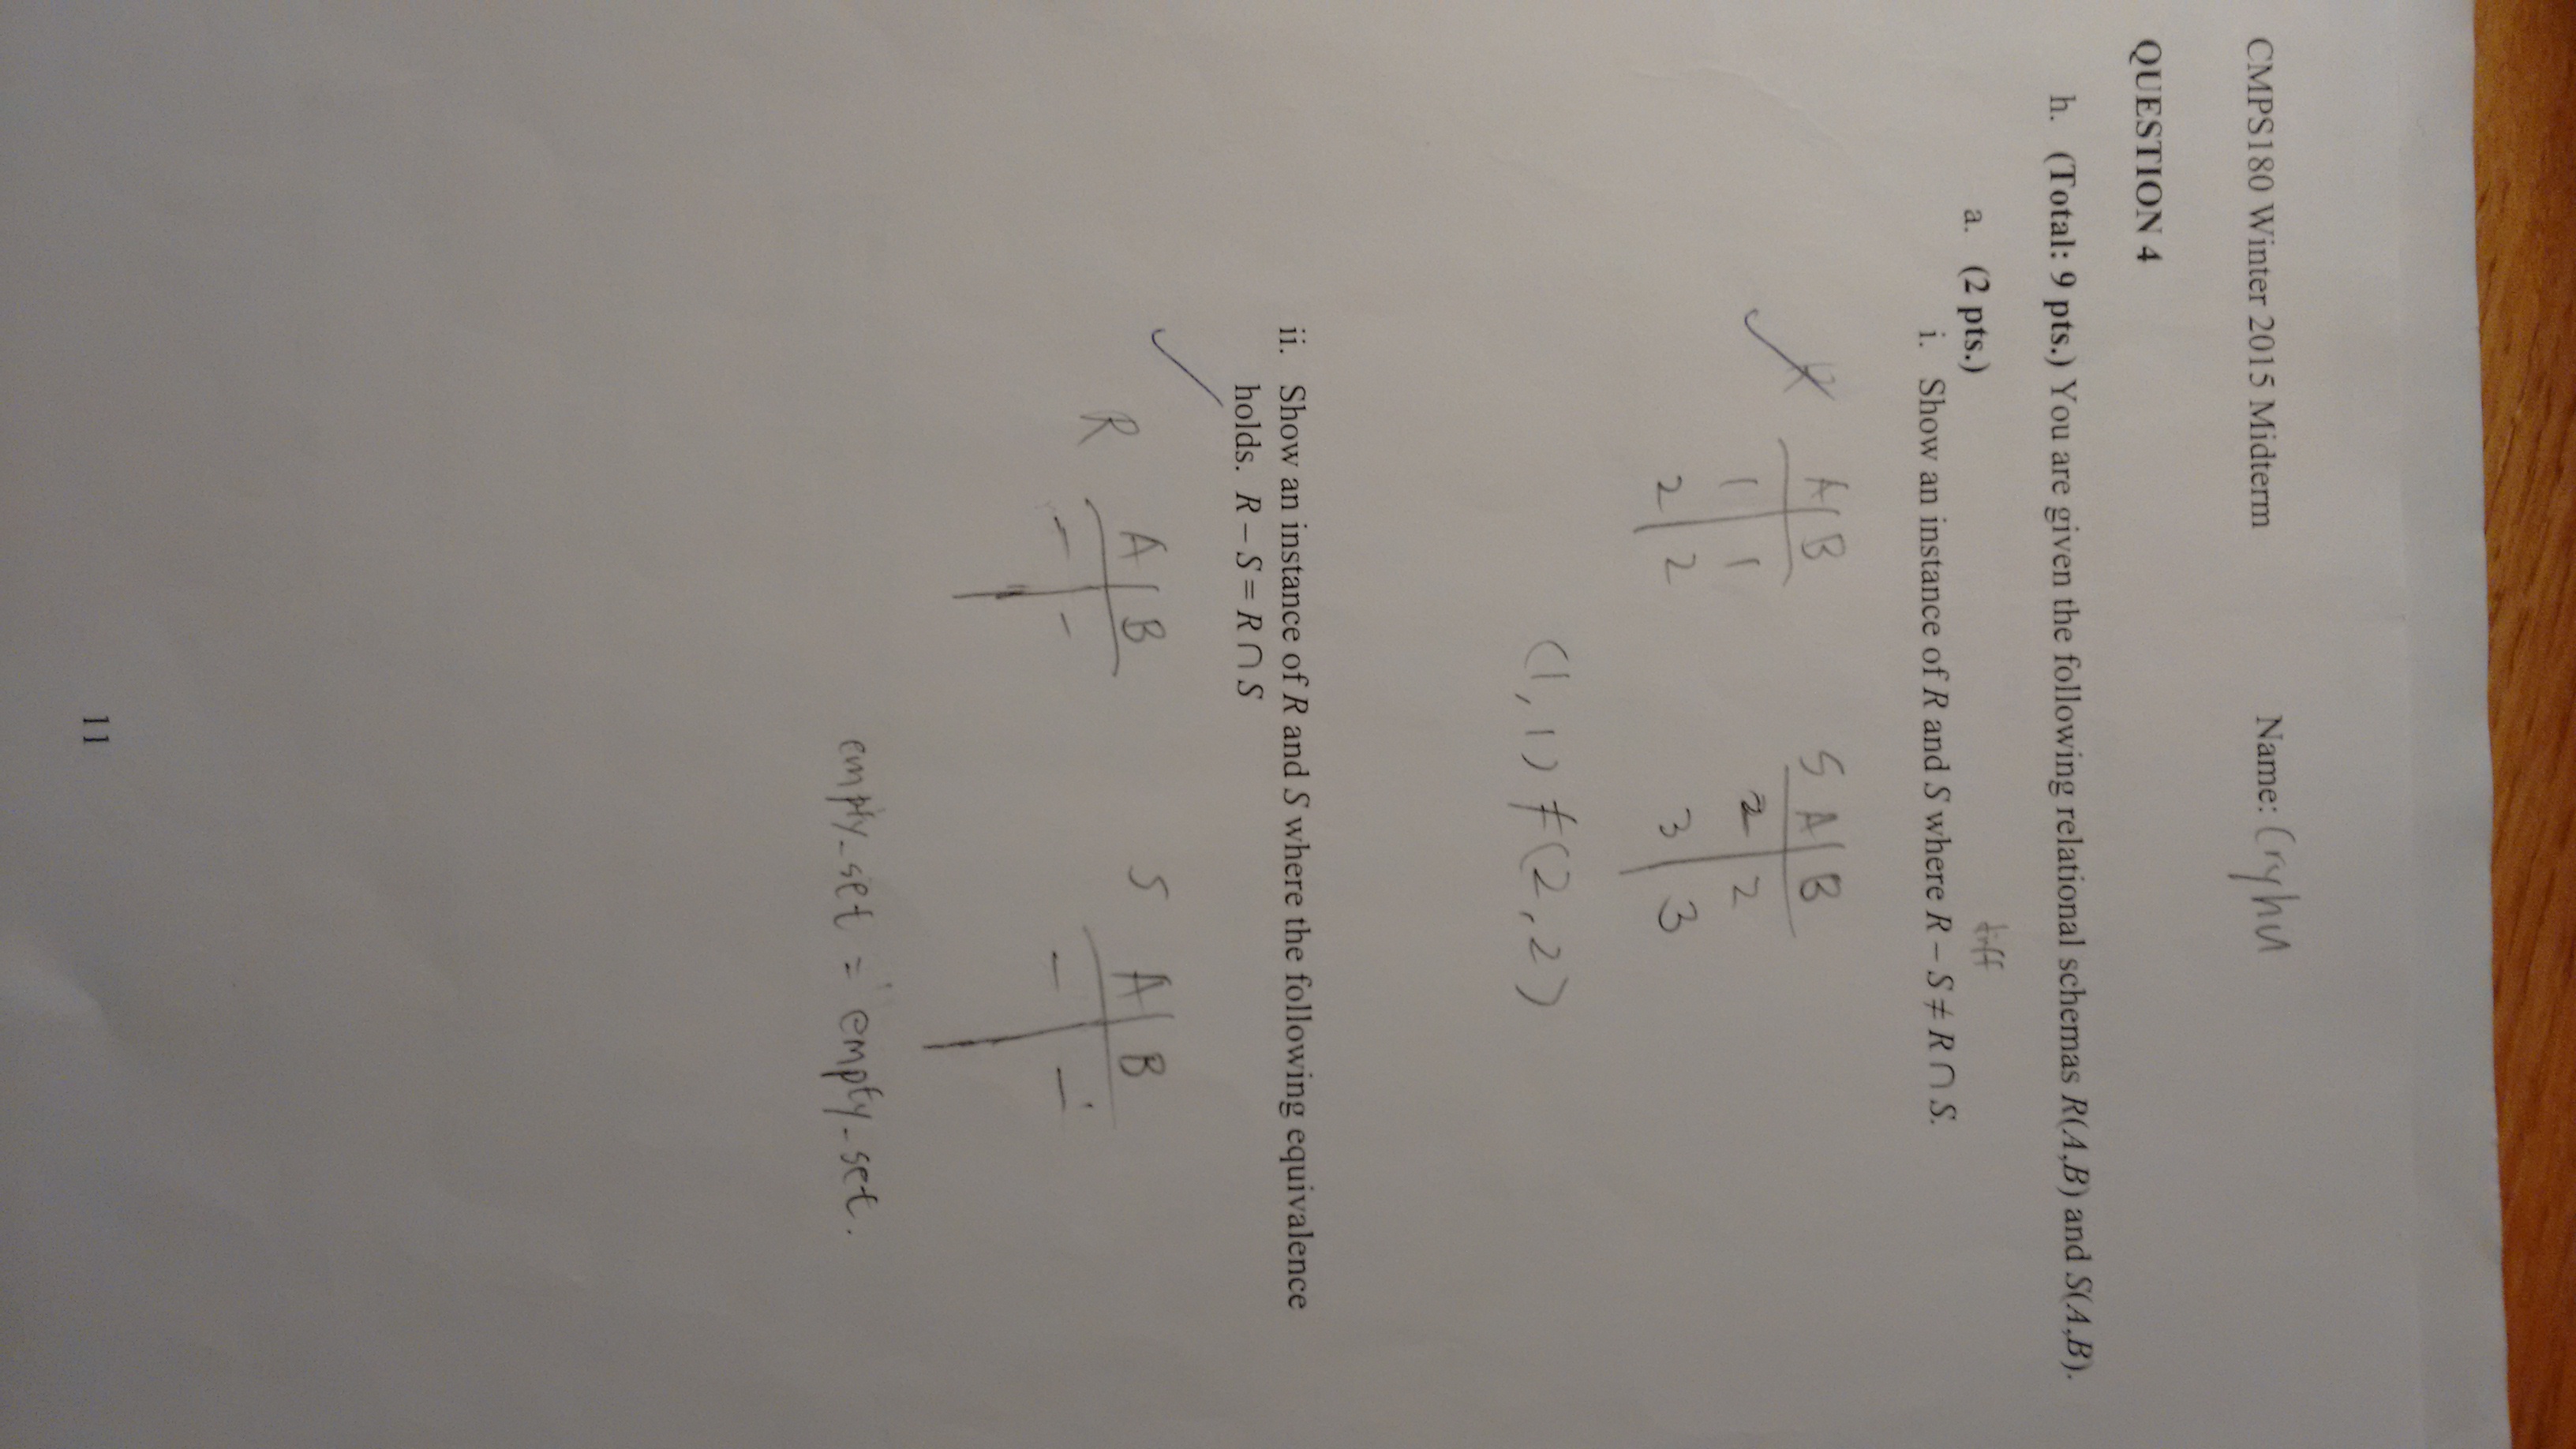 CMPS180 Winter 2015 Midterm Name: Cryhu
QUESTION 4
h. (Total: 9 pts.) You are given the following relational schemas R(A,B) and S(A,B).
diff
a. (2 pts.)
i. Show an instance of R and S where R – S ≠ R ∩ S.
R A B S A B
1 1 2 2
2 2 3 3
(1,1) ≠ (2,2)
ii. Show an instance of R and S where the following equivalence
holds. R – S = R ∩ S
R A B S A B
- - - -
empty_set = empty_set.
11